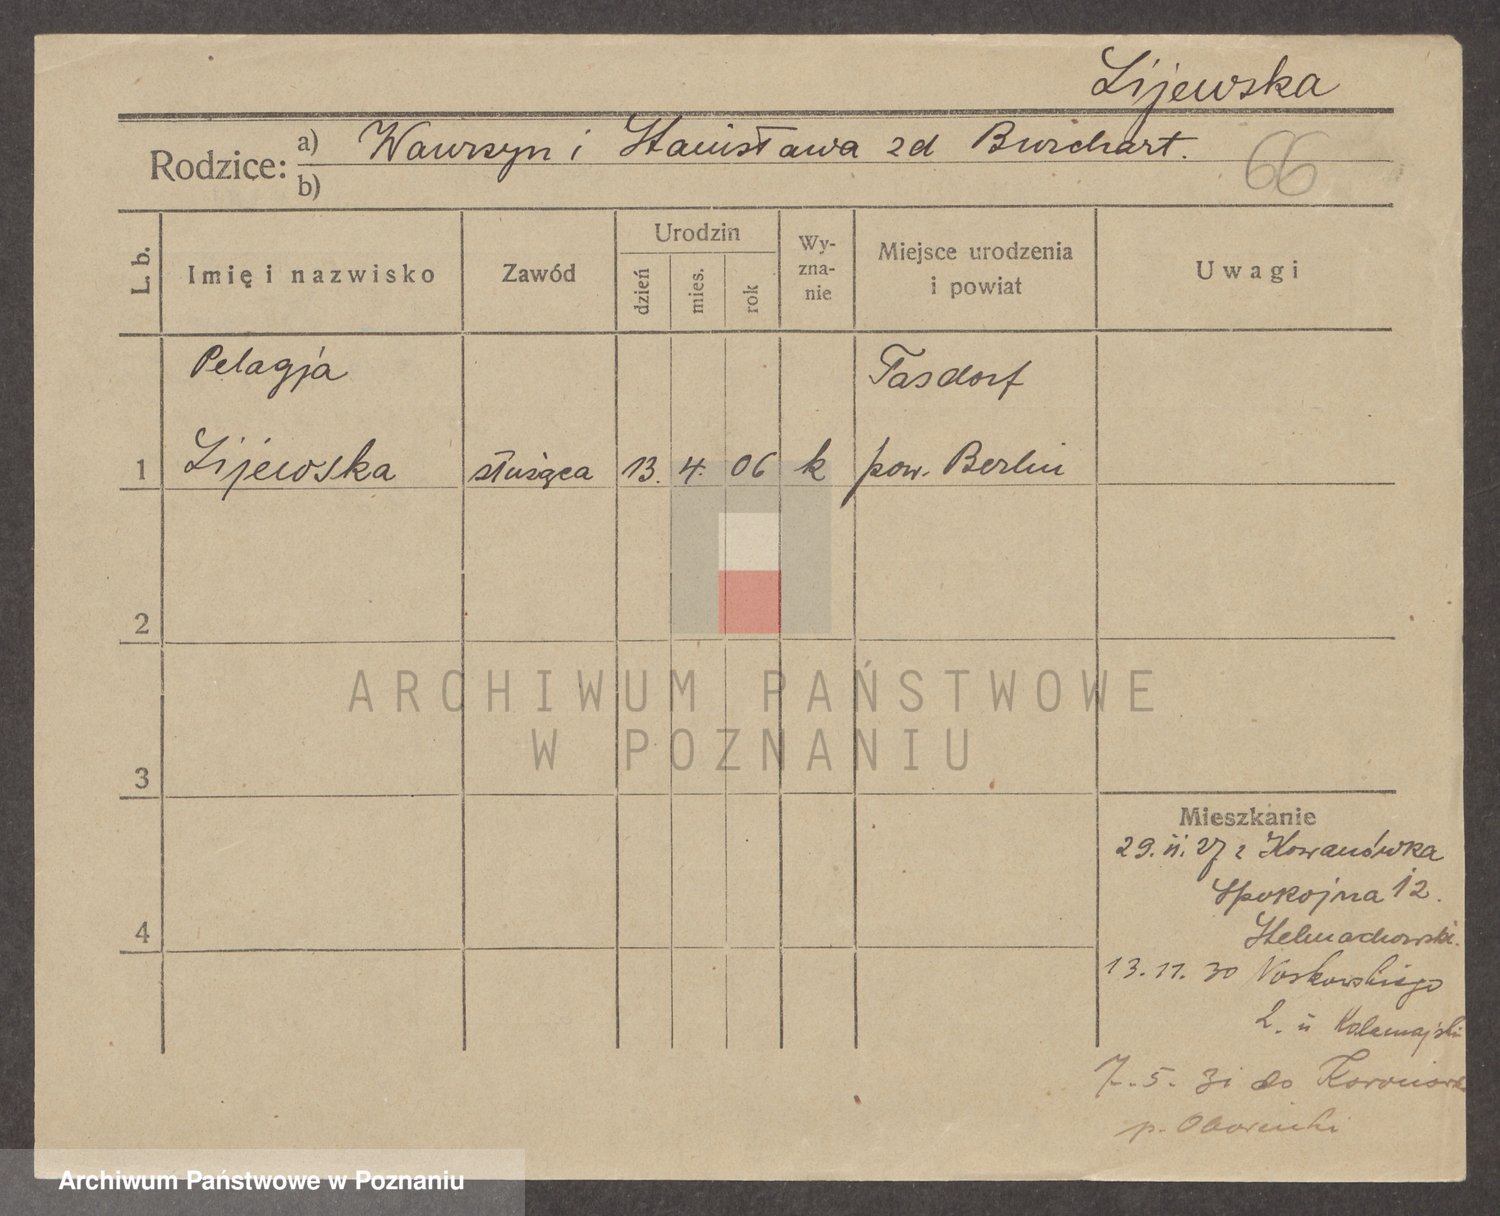 Lijewska
Rodzice: a) Wawrzyn i Stanisława zd Burchart.
b)
66
L. b.
Imię i nazwisko
Zawód
Urodzin
dzień
mies.
rok
Wy-
zna-
nie
Miejsce urodzenia
i powiat
Uwagi
Pelagja
Tasdorf
1 Lijewska służąca 13. 4. 06 k pow. Berlin
2
3
4
Mieszkanie
29. II. 27 z Kowanówka
Spokojna 12.
Stelmachowski.
13. 11. 30
L. u
7. 5. 31 do
p. Obornicki
ARCHIWUM PAŃSTWOWE
W POZNANIU
Archiwum Państwowe w Poznaniu